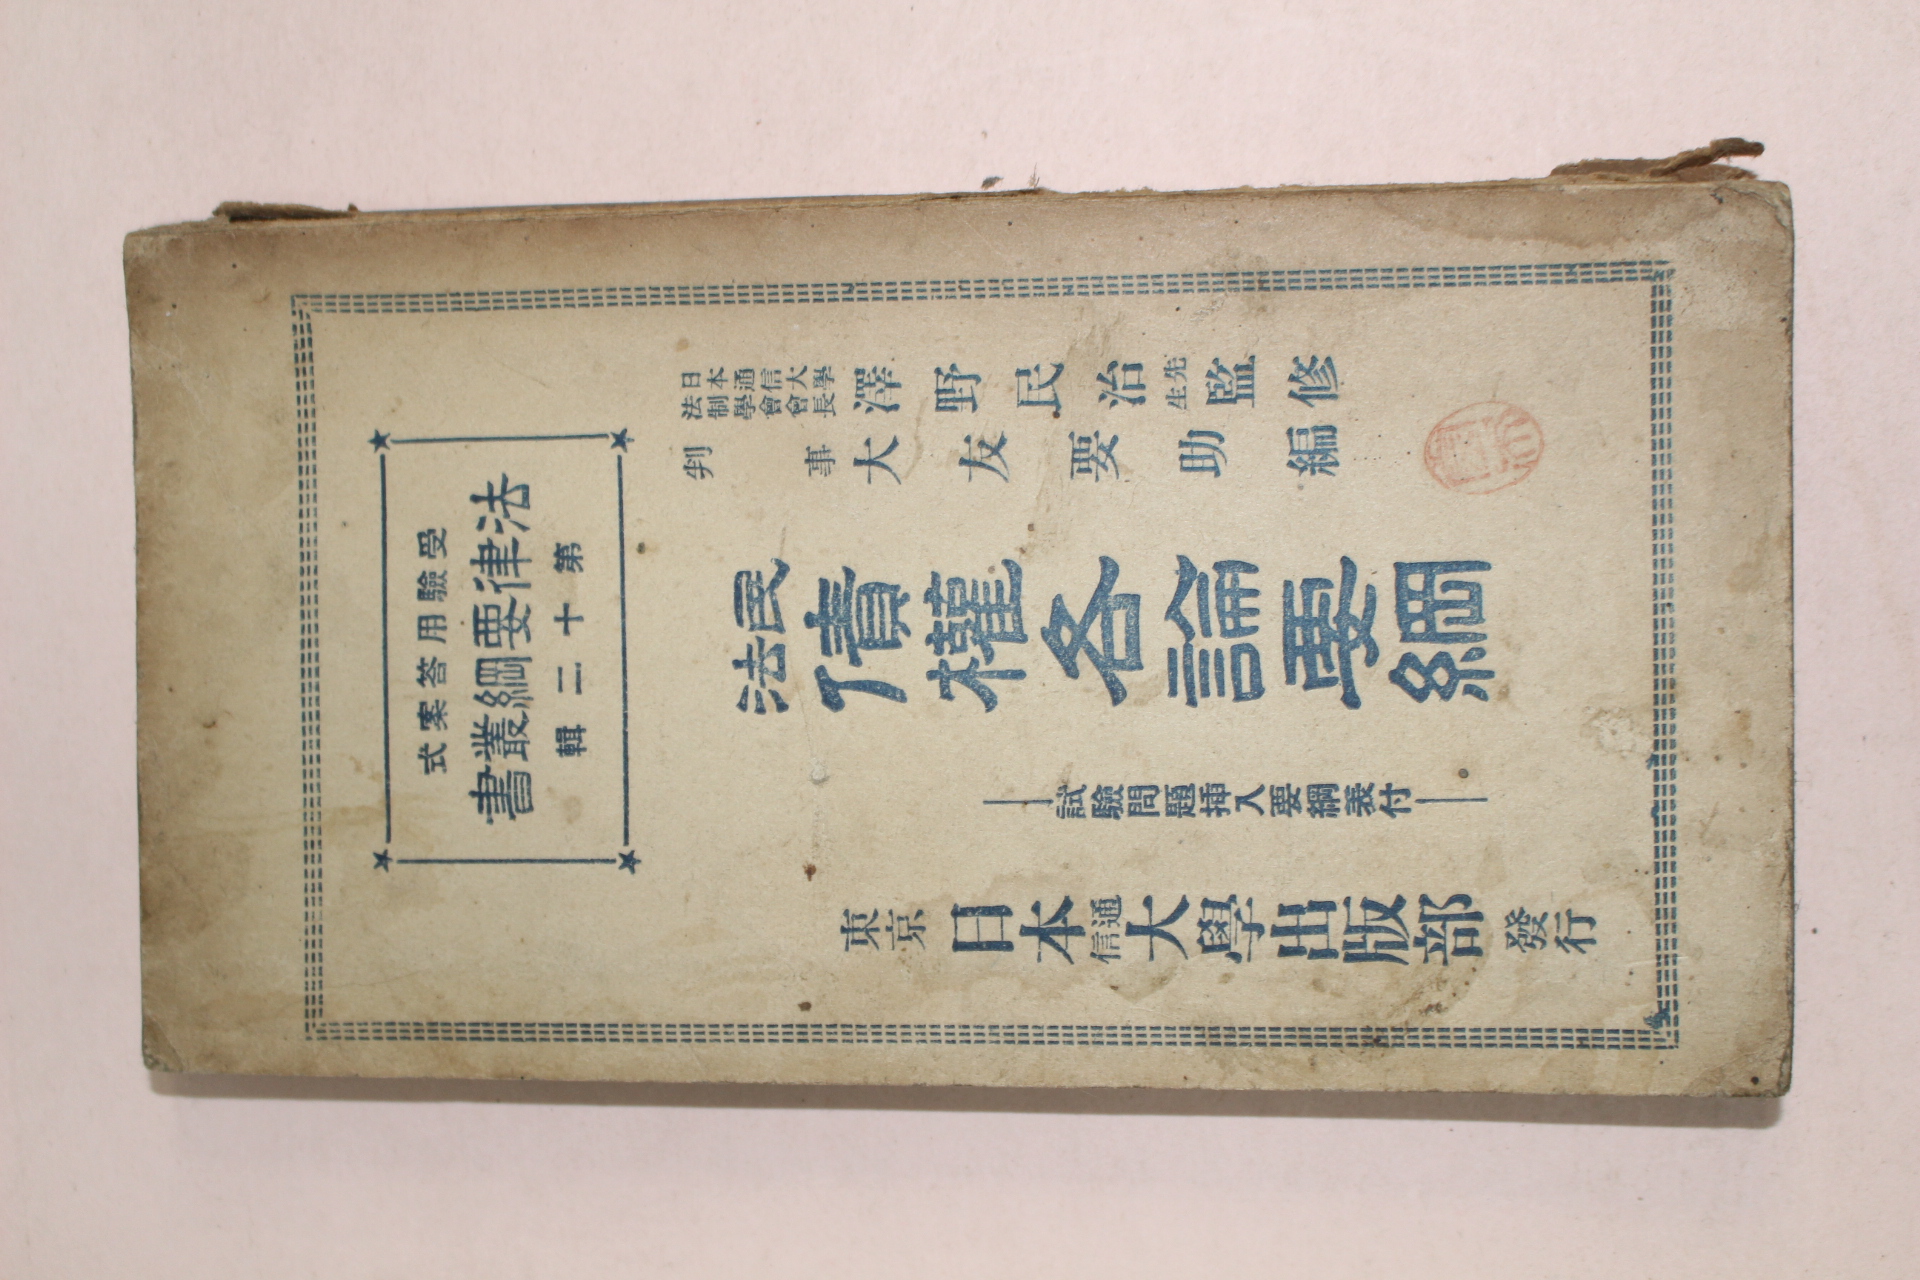 受驗用答案式
法律要綱叢書
第十二輯
日本通信大學
法制學會會長
澤野民治先生監修
判事 大友要助編
民法債權各論要綱
試驗問題挿入要綱表付
東京 日本通信大學出版部 發行